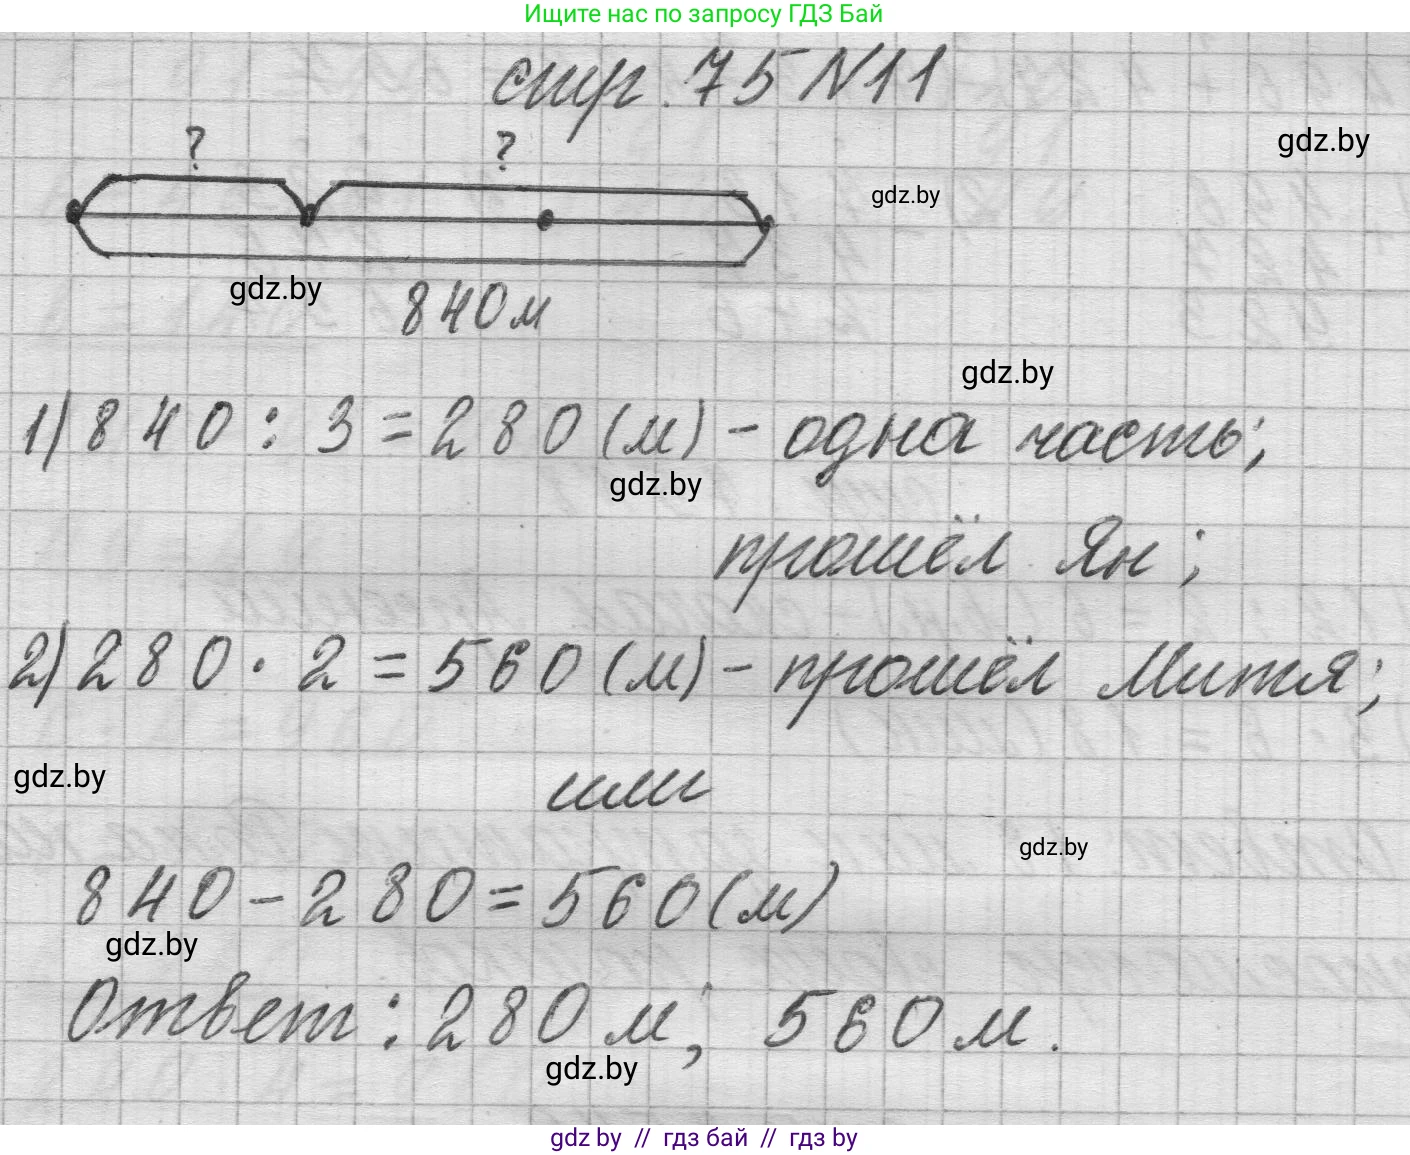 Ищите нас по запросу ГДЗ Бай
стр. 75 №11
gdz.by
? ?
gdz.by
gdz.by
840 м
gdz.by
1) 840 : 3 = 280 (м) - одна часть;
gdz.by
прошёл Ян;
2) 280 · 2 = 560 (м) - прошёл Митя;
gdz.by
или
gdz.by
840 - 280 = 560 (м)
gdz.by
Ответ: 280 м; 560 м.
gdz.by
gdz by // гдз бай // гдз by